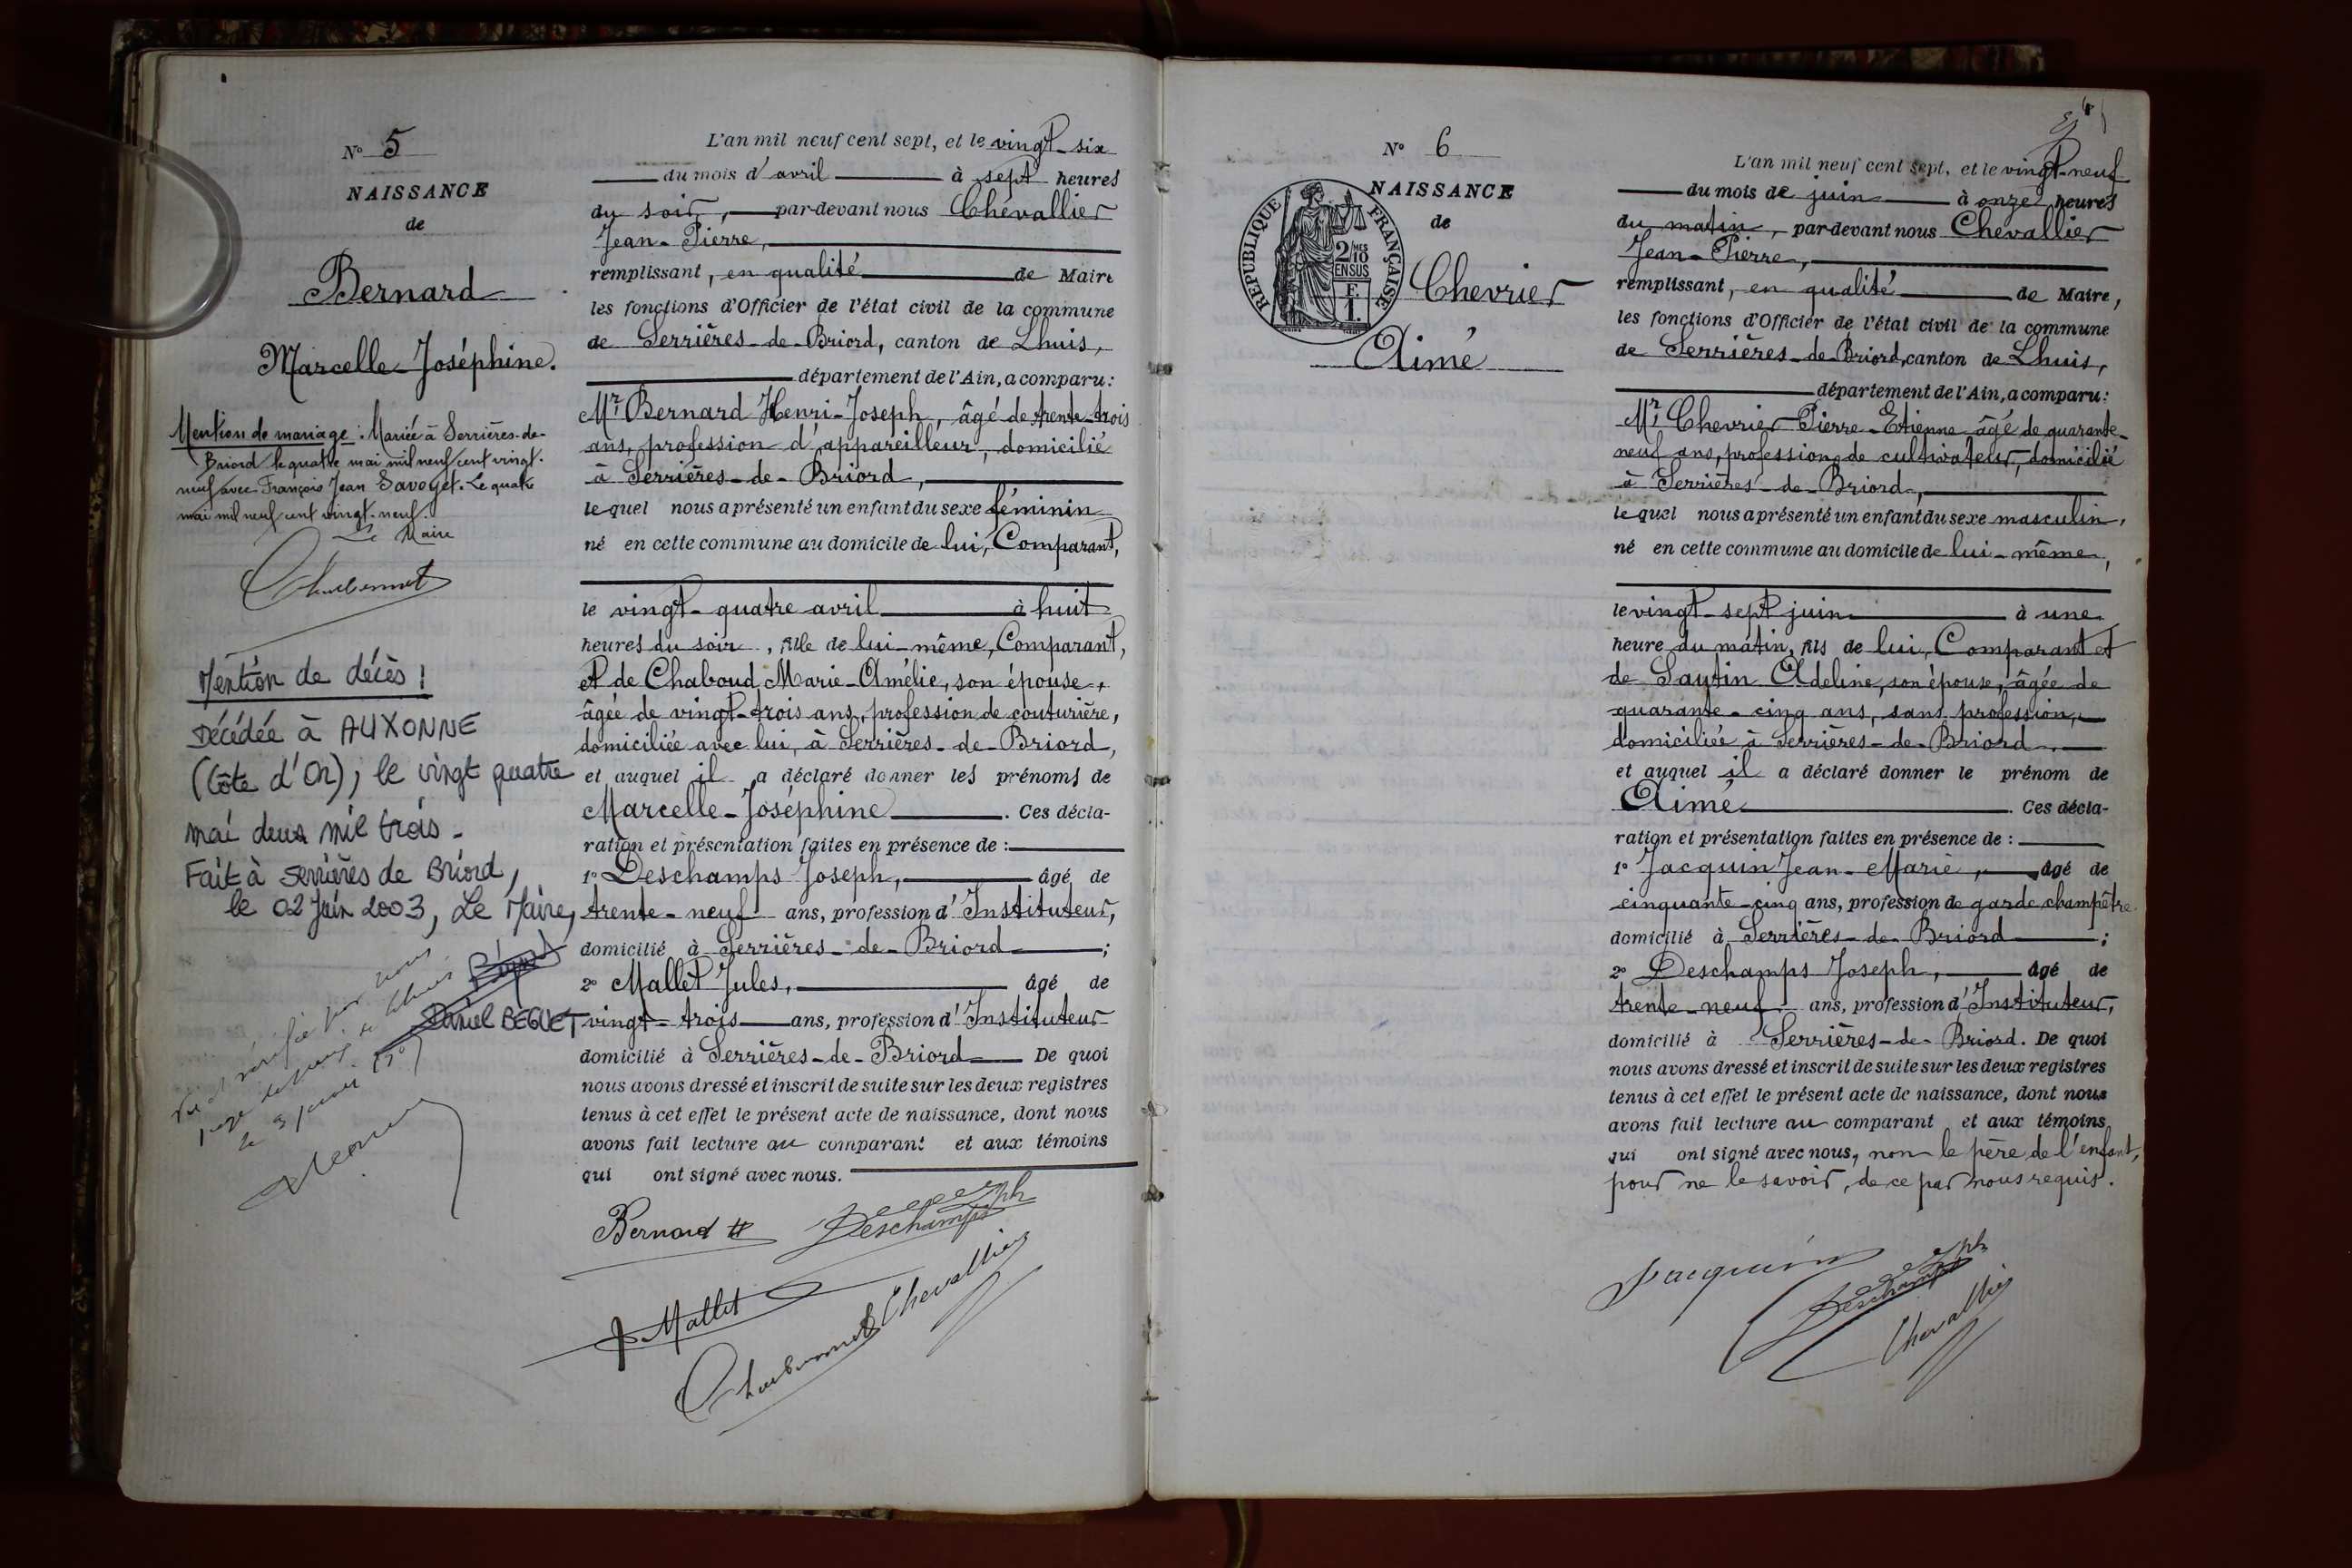 N° 5
NAISSANCE
de
Bernard
Marcelle-Joséphine.
Mention de mariage : Mariée à Serrières-de-
Briord le quatre mai mil neuf cent vingt-
neuf avec François Jean Savoyet. Le quatre
mai mil neuf cent vingt-neuf.
Le Maire
Mention de décès !
Décédée à AUXONNE
(Côte d'Or), le vingt quatre
mai deux mil trois -
Fait à Serrières de Briord,
le 02 Juin 2003, Le Maire,
Daniel BEGUET
L'an mil neuf cent sept, et le vingt-six
du mois d'avril à sept heures
du soir, par-devant nous Chevallier
Jean-Pierre,
remplissant, en qualité de Maire
les fonctions d'Officier de l'état civil de la commune
de Serrières-de-Briord, canton de Lhuis,
département de l'Ain, a comparu :
Mr Bernard Henri-Joseph, âgé de trente-trois
ans, profession d'appareilleur, domicilié
à Serrières-de-Briord,
lequel nous a présenté un enfant du sexe féminin
né en cette commune au domicile de lui, Comparant,
le vingt-quatre avril à huit
heures du soir, fille de lui-même, Comparant,
et de Chaboud Marie-Amélie, son épouse,
âgée de vingt-trois ans, profession de couturière,
domiciliée avec lui, à Serrières-de-Briord,
et auquel il a déclaré donner les prénoms de
Marcelle-Joséphine. Ces décla-
ration et présentation faites en présence de :
1° Deschamps Joseph, âgé de
trente-neuf ans, profession d'Instituteur,
domicilié à Serrières-de-Briord ;
2° Mallet Jules, âgé de
vingt-trois ans, profession d'Instituteur
domicilié à Serrières-de-Briord De quoi
nous avons dressé et inscrit de suite sur les deux registres
tenus à cet effet le présent acte de naissance, dont nous
avons fait lecture au comparant et aux témoins
qui ont signé avec nous.
Bernard H
Deschamps Jph
J Mallet
Chevallier
N° 6
NAISSANCE
de
RÉPUBLIQUE FRANÇAISE
2/10 MES
EN SUS
F.
1.
Chevrier
Aimé
L'an mil neuf cent sept, et le vingt-neuf
du mois de juin à onze heures
du matin, par-devant nous Chevallier
Jean-Pierre,
remplissant, en qualité de Maire,
les fonctions d'Officier de l'état civil de la commune
de Serrières-de-Briord, canton de Lhuis,
département de l'Ain, a comparu :
Mr Chevrier Pierre-Etienne âgé de quarante-
neuf ans, profession de cultivateur, domicilié
à Serrières-de-Briord,
lequel nous a présenté un enfant du sexe masculin,
né en cette commune au domicile de lui-même,
le vingt-sept juin à une
heure du matin, fils de lui, Comparant et
de Sautin Adeline, son épouse, âgée de
quarante-cinq ans, sans profession,
domiciliée à Serrières-de-Briord,
et auquel il a déclaré donner le prénom de
Aimé. Ces décla-
ration et présentation faites en présence de :
1° Jacquin Jean-Marie, âgé de
cinquante-cinq ans, profession de garde champêtre
domicilié à Serrières-de-Briord ;
2° Deschamps Joseph, âgé de
trente-neuf ans, profession d'Instituteur,
domicilié à Serrières-de-Briord. De quoi
nous avons dressé et inscrit de suite sur les deux registres
tenus à cet effet le présent acte de naissance, dont nous
avons fait lecture au comparant et aux témoins
qui ont signé avec nous, non le père de l'enfant,
pour ne le savoir, de ce par nous requis.
Jacquin
Deschamps Jph
Chevallier